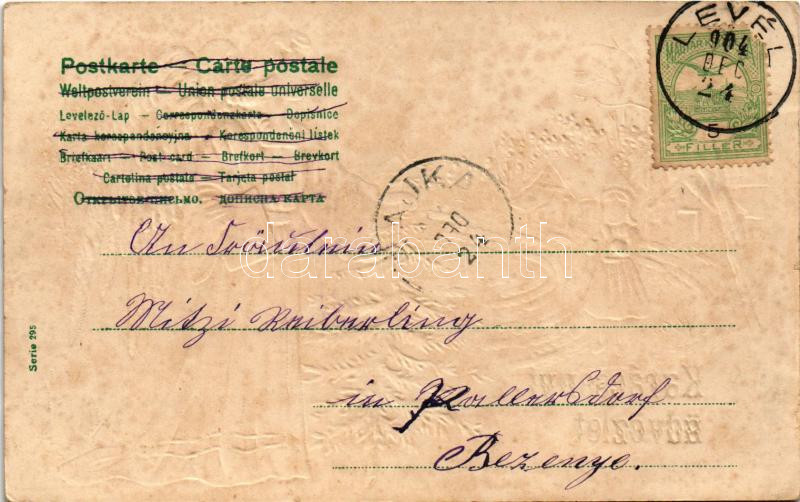 Postkarte — Carte postale
Weltpostverein — Union postale universelle
Levelező-Lap — Correspondenzkarte — Dopisnice
Karta korespondencyjna — Korespondenčni listek
Briefkaart — Post card — Brefkort — Brevkort
Cartolina postale — Tarjeta postal
Открытое письмо. дописна карта
LEVÉL
904
DEC
24
5
FILLER
RAJKA
24
An Fräulein
Mitzi Reiberling
in Pallersdorf
Bezenye.
Serie 295
darabanth